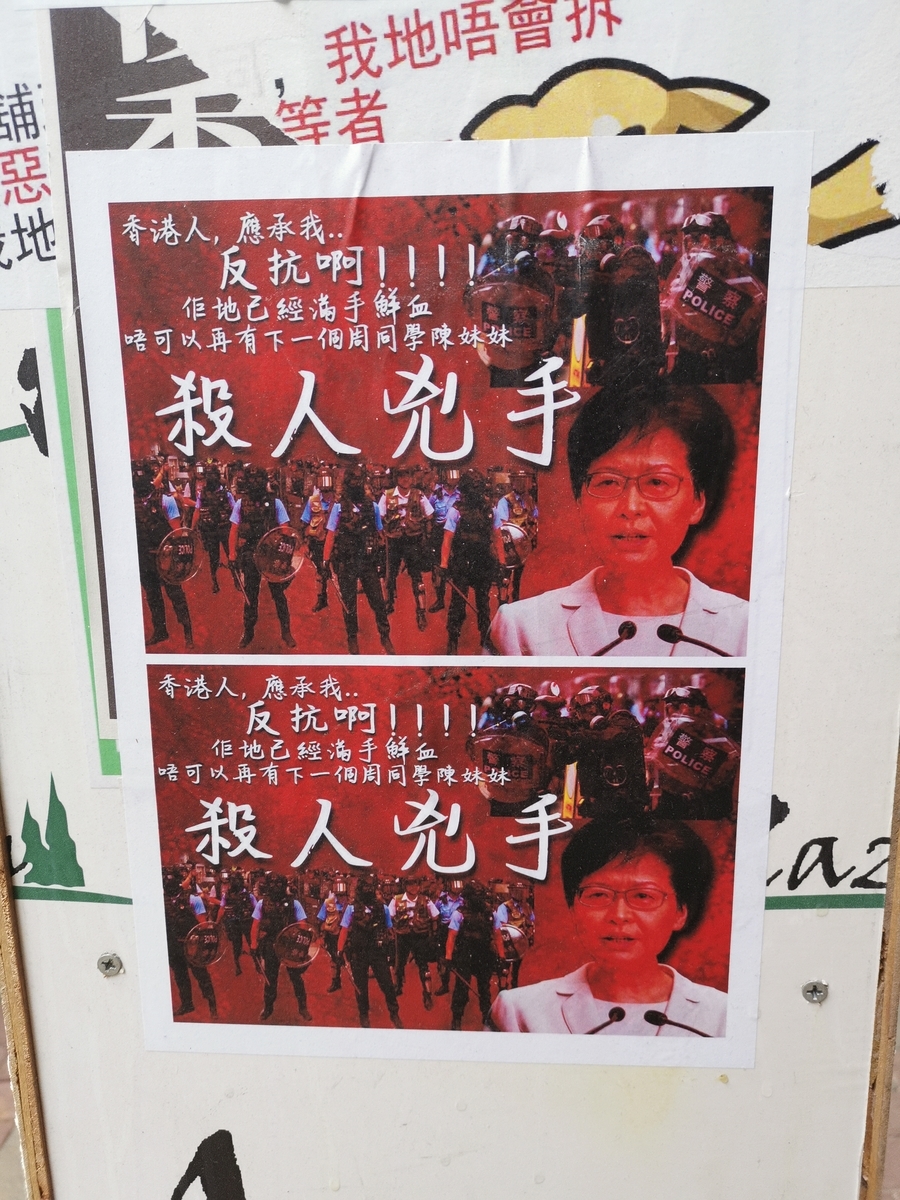 我地唔會拆
，
等者
舖
惡
我地
香港人, 應承我..
反抗啊!!!!
佢地已經滿手鮮血
唔可以再有下一個周同學陳妹妹
殺人兇手
警察
POLICE
POLICE
POLICE
香港人, 應承我..
反抗啊!!!!
佢地已經滿手鮮血
唔可以再有下一個周同學陳妹妹
殺人兇手
警察
POLICE
POLICE
POLICE
laz